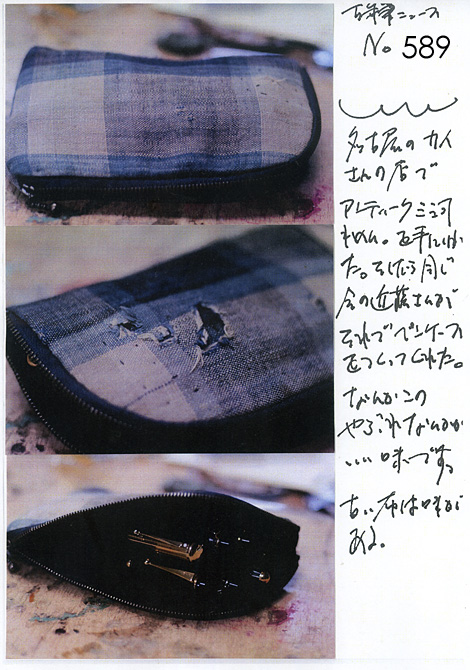 ニュース
No 589
名古屋のカイ
さんの店で
アンティークミシン
もめん。を手にいれ
た。そしたら同じ
会の近藤さんが
それでペンケース
をつくってくれた。
なんかこの
やぶれなんかが
いい味です。
古い布は味が
ある。